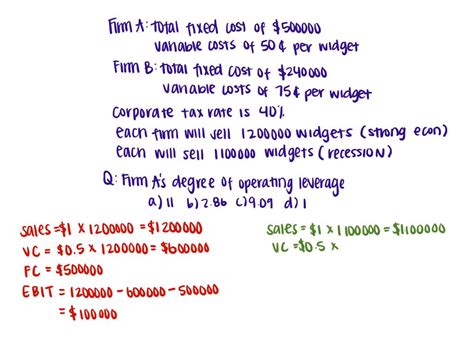 Firm A: total fixed cost of $500000
variable costs of 50¢ per widget
Firm B: total fixed cost of $240000
variable costs of 75¢ per widget
corporate tax rate is 40%
each firm will sell 1200000 widgets (strong econ)
each will sell 1100000 widgets (recession)
Q: Firm A's degree of operating leverage
a) 11 b) 2.86 c) 9.09 d) 1
sales = $1 x 1200000 = $1200000
VC = $0.5 x 1200000 = $600000
FC = $500000
EBIT = 1200000 - 600000 - 500000
= $100000
sales = $1 x 1100000 = $1100000
VC = $0.5 x